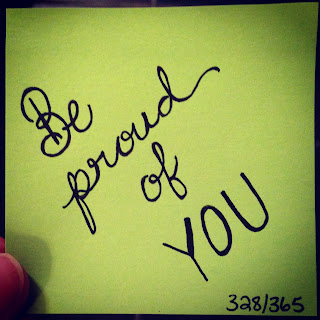 Be
proud
of
YOU
328/365